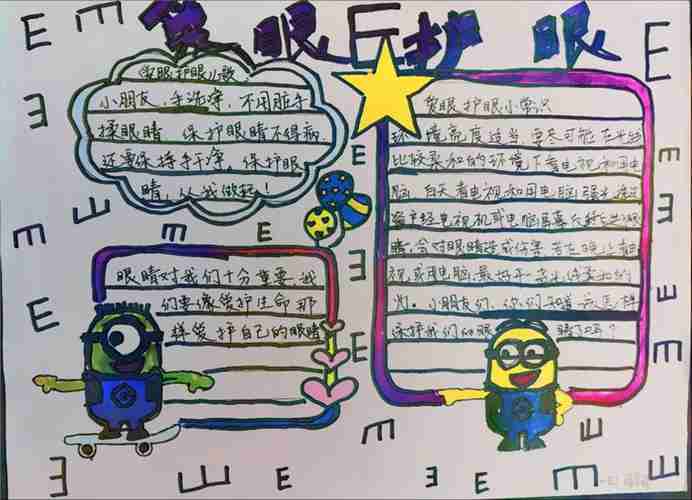 爱眼E护眼
爱眼护眼儿歌
小朋友,手洗净,不用脏手
揉眼睛,保护眼睛不得病
还要保持手干净,保护眼
睛,从我做起!
爱眼护眼小常识
环境亮度适当,要尽可能在光线
比较柔和的环境下看电视和用电
脑,白天看电视和用电脑强光
窗户经电视机或电脑屏幕
睛,会对眼睛造成伤害,若在晚上看电
视或用电脑,最好开一盏光线柔和的
灯。小朋友们,你们知道该怎样
保护我们的眼睛了吗?
眼睛对我们十分重要,我
们要像爱护生命那
样爱护自己的眼睛
E E E E E E E E E E E E E E E E E E E E E E E E